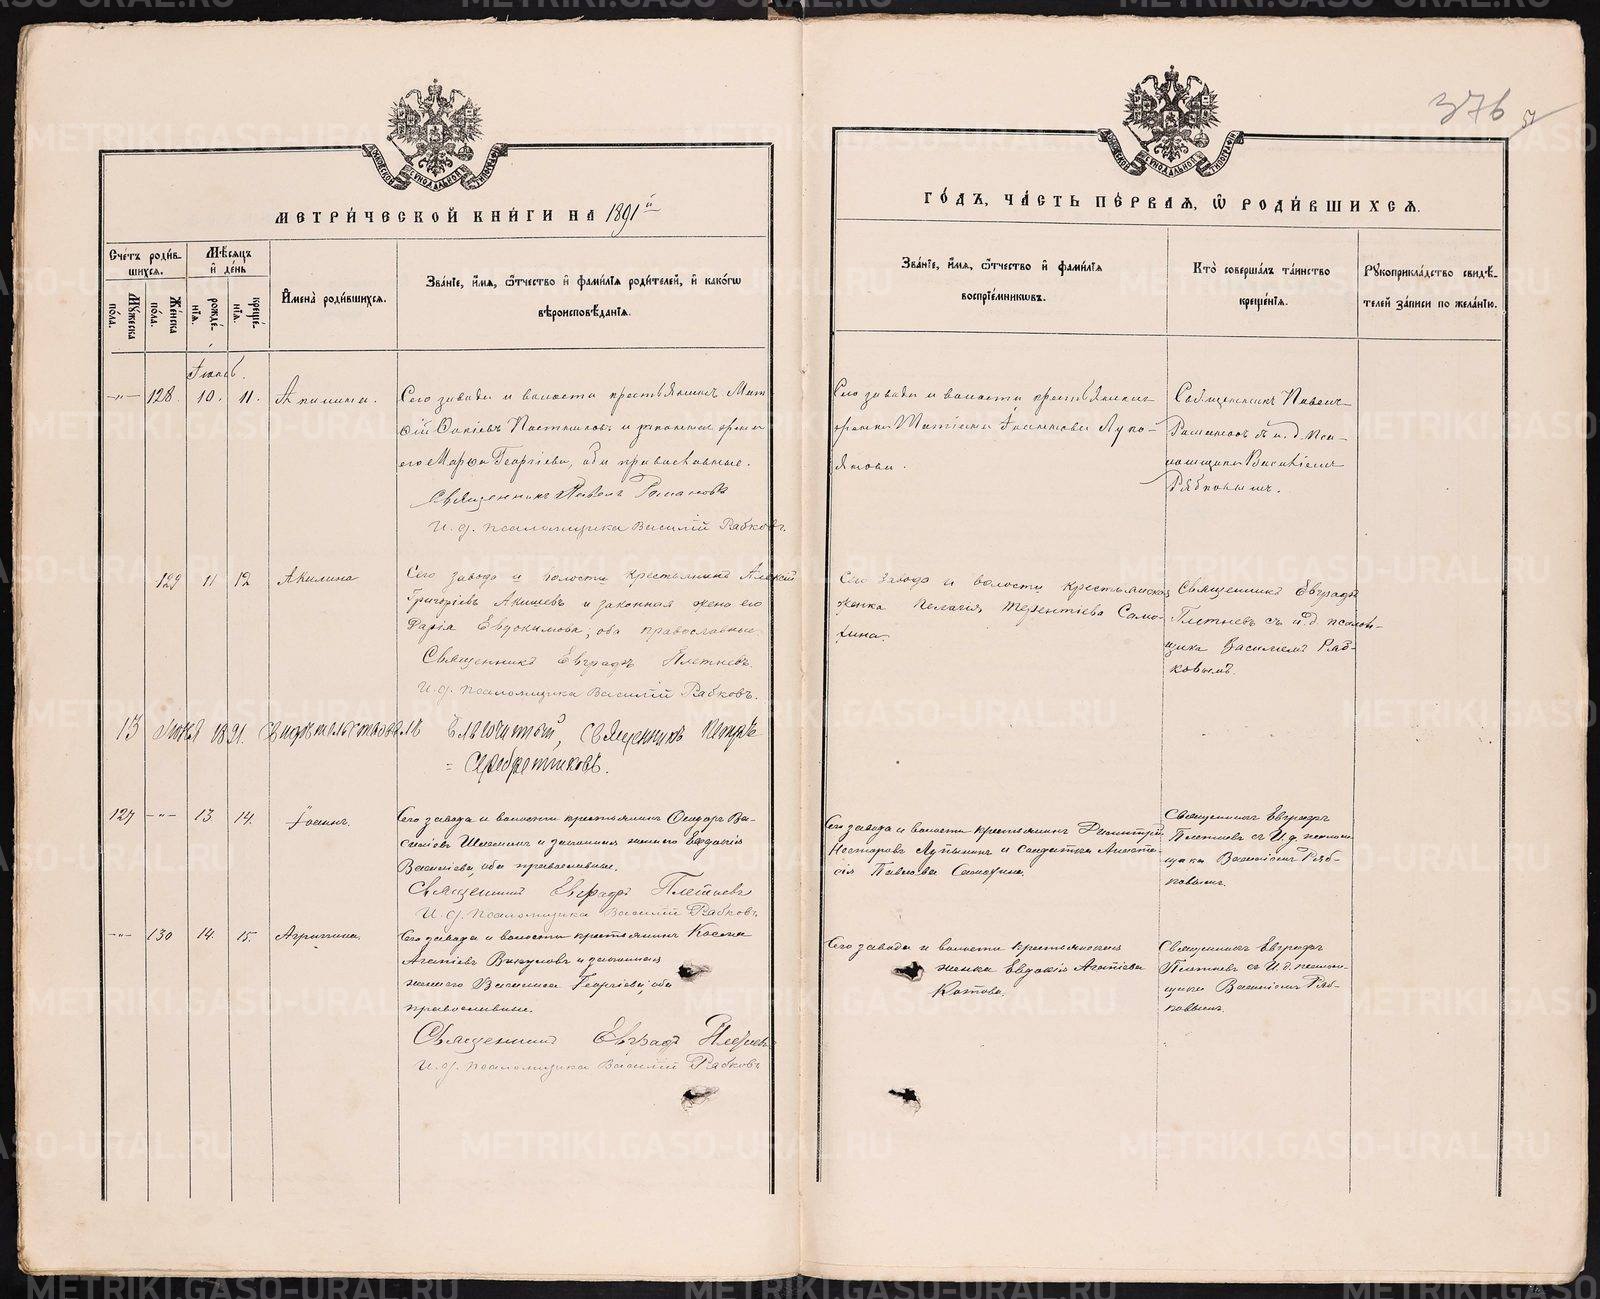 376
МЕТРИ́ЧЕСКОЙ КНИ́ГИ НА 1891й
ГО́ДЪ, ЧА́СТЬ ПЕ́РВАЯ, Ѡ҆ РОДИ́ВШИХСЯ.
Сче́тъ роди́в-
шихся.
Му́жеска по́ла.
Же́нска по́ла.
Мѣ́сяцъ
и҆ де́нь
рожде́-
нїя.
креще́-
нїя.
И҆мена̀ роди́вшихся.
Зва́нїе, и҆́мя, ѻ҆́тчество и҆ фами́лїя роди́телей, и҆ како́гѡ
вѣроисповѣ́данїя.
Зва́нїе, и҆́мя, ѻ҆́тчество и҆ фами́лїя
воспрїе́мниковъ.
Кто̀ соверша́лъ та́инство
креще́нїя.
Рꙋкоприкла́дство свидѣ́-
телей за́писи по жела́нїю.
Іюнь.
-"- 128. 10. 11. Акилина.
Сего завода и волости крестьянинъ
и законная жена
его Марѳа Георгіева, оба православные.
Священникъ Павелъ Романовъ
И. д. псаломщика Василій Рябковъ.
Сего завода и волости крестьянская
женка Іоаннова Луко-
янова.
Священникъ Павелъ
Романовъ съ и. д. пса-
ломщика Василіемъ
Рябковымъ.
129 11 12 Акилина
Сего завода и волости крестьянинъ Алексій
Григоріевъ Акишевъ и законная жена его
Дарія Евдокимова, оба православные.
Священникъ Евградъ Плетневъ.
И. д. псаломщика Василій Рябковъ.
Сего завода и волости крестьянская
женка Пелагія Терентіева Само-
хина.
Священникъ Евградъ
Плетневъ съ и. д. псалом-
щика Василіемъ Ряб-
ковымъ.
13 Іюня 1891. Свидѣтельствовалъ Благочинный, священникъ Петръ
Серебренниковъ.
127 -"- 13. 14. Іоаннъ.
Сего завода и волости крестьянинъ Ѳеодоръ Ва-
силіевъ и законная жена его Евдокія
Василіева, оба православные.
Священникъ Евградъ Плетневъ
И. д. псаломщика Василій Рябковъ.
Сего завода и волости крестьянинъ Димитрій
Несторовъ и солдатка Анаста-
сія Павлова Самохина.
Священникъ Евградъ
Плетневъ съ И. д. псалом-
щика Василіемъ Ряб-
ковымъ.
-"- 130 14. 15. Агриппина.
Сего завода и волости крестьянинъ Косма
Агапіевъ Викуловъ и законная
жена его Василиса Георгіева, оба
православные.
Священникъ Евградъ Плетневъ
И. д. псаломщика Василій Рябковъ
Сего завода и волости крестьянская
женка Евдокія Агапіева
Котова.
Священникъ Евградъ
Плетневъ съ И. д. псалом-
щика Василіемъ Ряб-
ковымъ.
METRIKI.GASO-URAL.RU